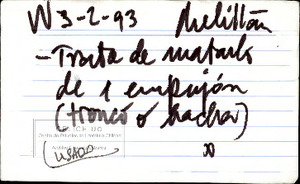 W 3-2-93 Melitón
- Trata de matarlo
de 1 empujón
(troncó o hacha)
USADO